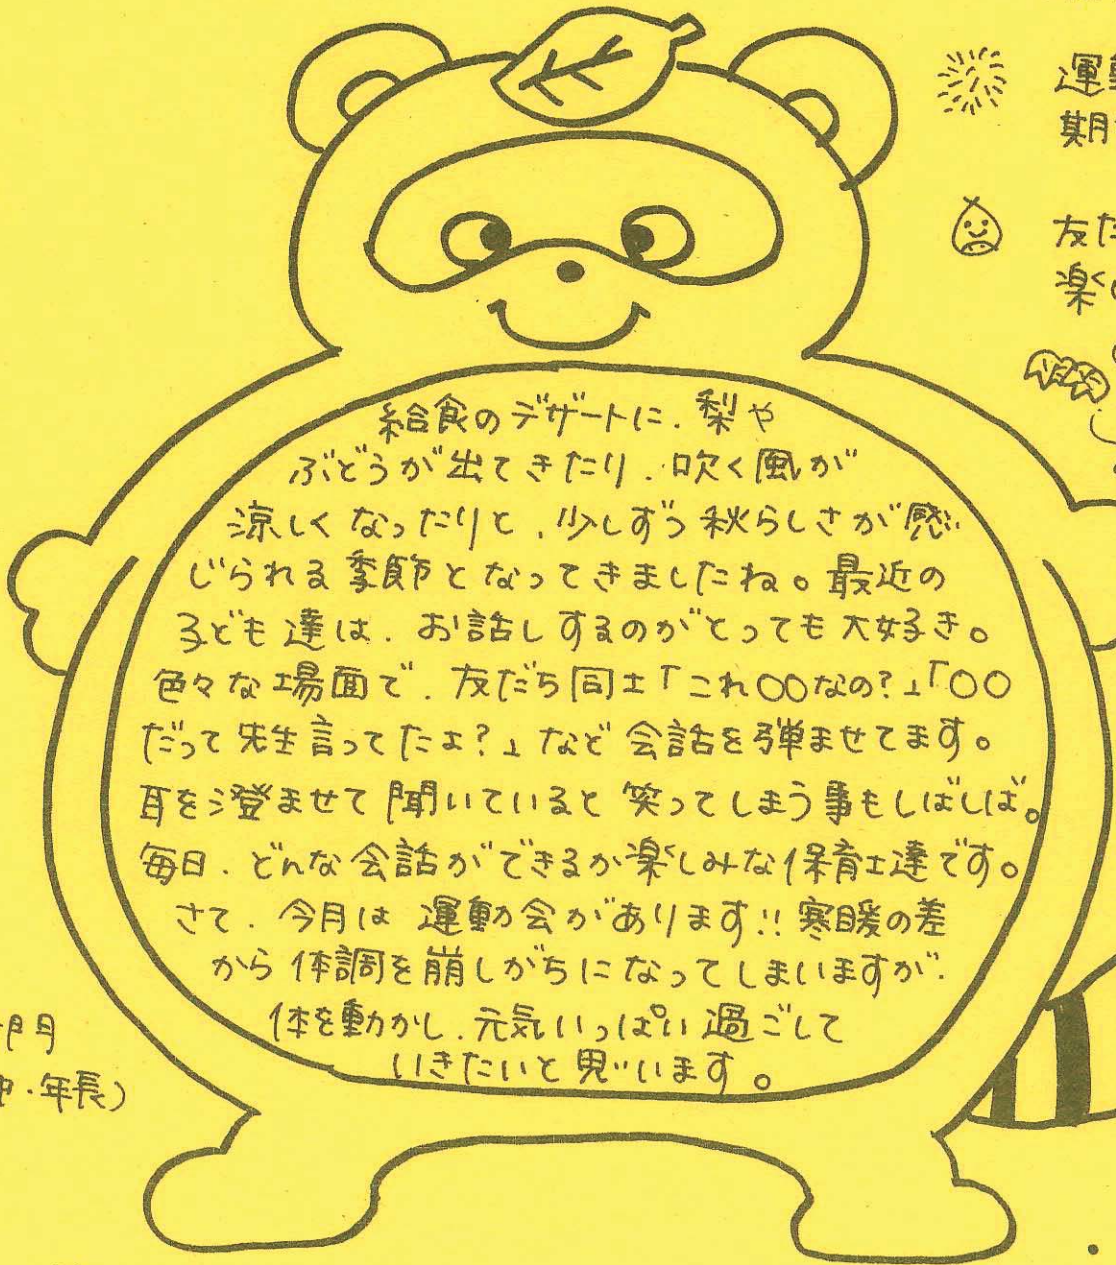 給食のデザートに、梨や
ぶどうが出てきたり、吹く風が
涼しくなったりと、少しずつ秋らしさが感
じられる季節となってきましたね。最近の
子ども達は、お話しするのがとっても大好き。
色々な場面で、友だち同士「これ〇〇なの?」「〇〇
だって先生言ってたよ?」など会話を弾ませてます。
耳を澄ませて聞いていると笑ってしまう事もしばしば。
毎日、どんな会話ができるか楽しみな保育士達です。
さて、今月は運動会があります!!寒暖の差
から体調を崩しがちになってしまいますが、
体を動かし、元気いっぱい過ごして
いきたいと思います。
運
期
友
楽
・年長)